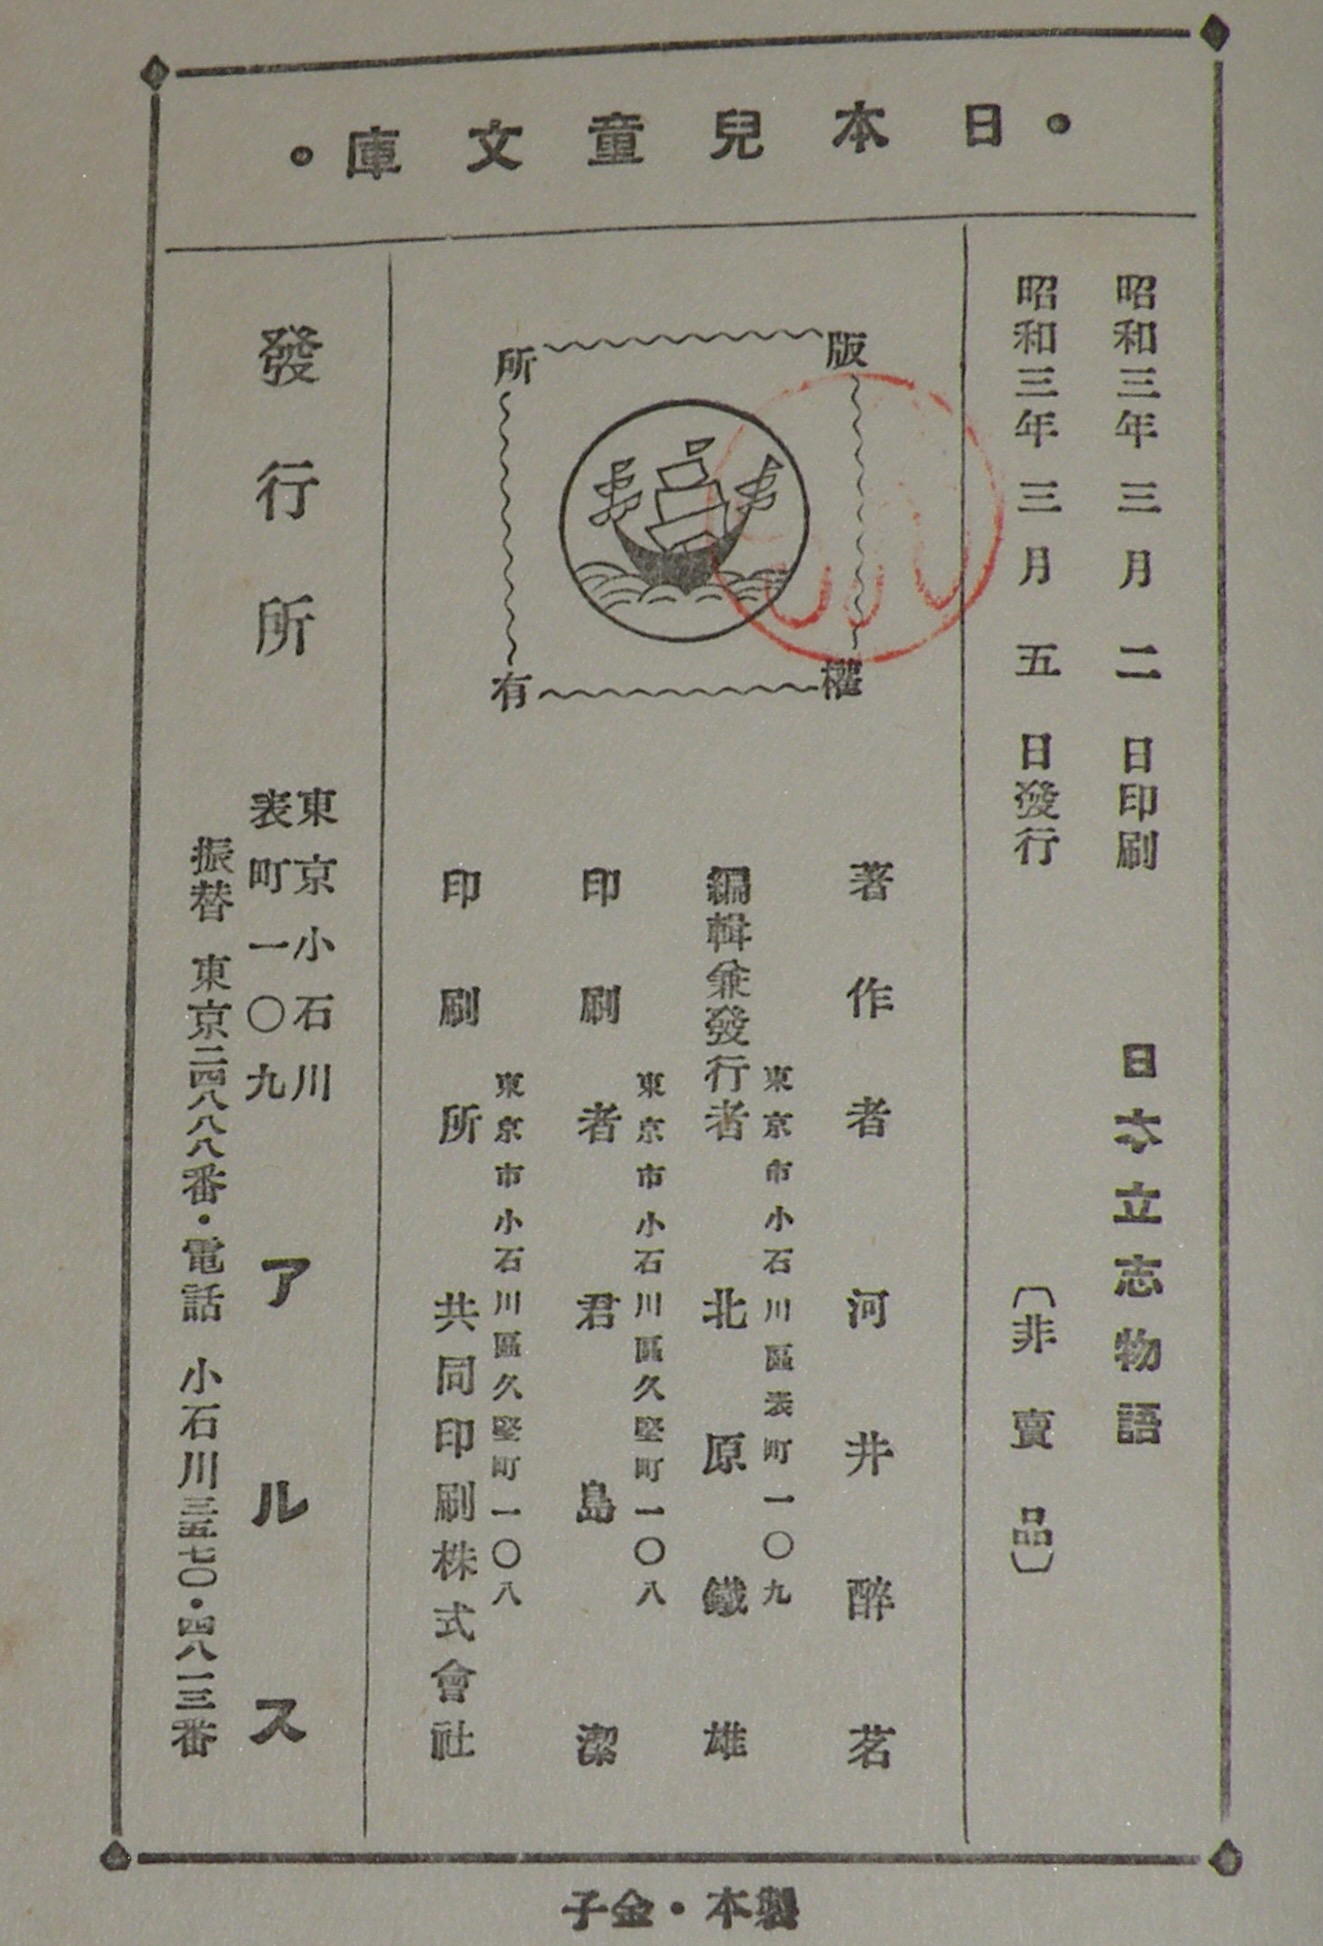 ・日本兒童文庫・
昭和三年三月二日印刷
日本立志物語
昭和三年三月五日發行
〔非賣品〕
版權所有
著作者 河井醉茗
東京市小石川區表町一〇九
編輯兼發行者 北原鐵雄
東京市小石川區久堅町一〇八
印刷者 君島潔
東京市小石川區久堅町一〇八
印刷所 共同印刷株式會社
發行所
東京小石川
表町一〇九
アルス
振替 東京二四八八八番・電話 小石川三五七〇・四八一三番
製本・金子